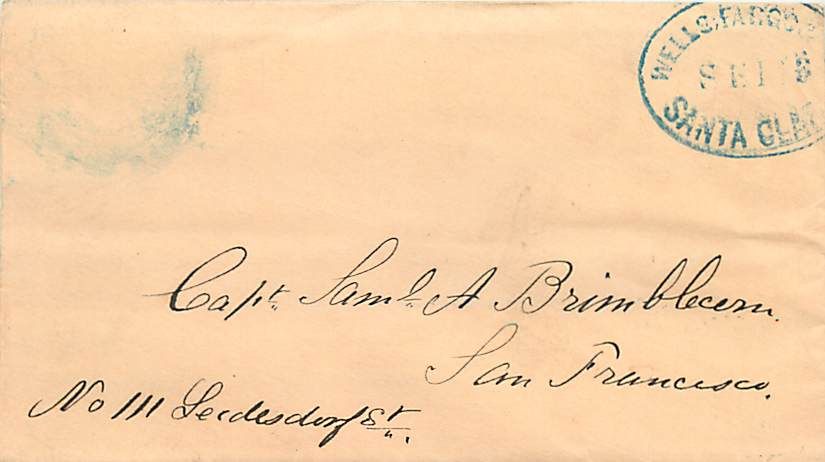 WELLS, FARGO &
SEP
SANTA CLA
Capt. Saml. A Brimblecom.
San Francisco.
No 111 Leidesdorf St.